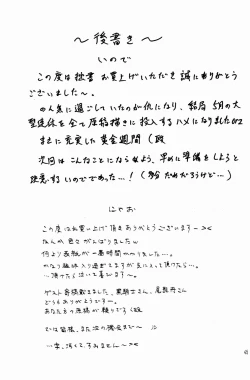 ～後書き～
いので
この度は拙書 お買上げいただき 誠にありがとう
ございました～。
の人気に過ごしていたのが仇になり、結局 5月の大
型連休を全て原稿描きに投入するハメになりましたorz
まさに充実した黄金週間 (殴
次回はこんなことにならぬよう、早めに準備をしようと
決意するいのでであった…! (多分 だめだろうけど…)
にゃお
この度はお買い上げ頂きありがとうございます～><
なんか色々がんばりましたw
何より表紙が一番時間かかりました…。
かなり趣味入り過ぎてますが気に入って頂けたら…。
…頂けたら泣いて喜びます～。
ゲスト原稿戴きました、黒騎士さん、
どうもありがとうです～。
あなた方の原稿が頼りです
では皆様、また次の機会まで～
…字、汚くてすみません～><